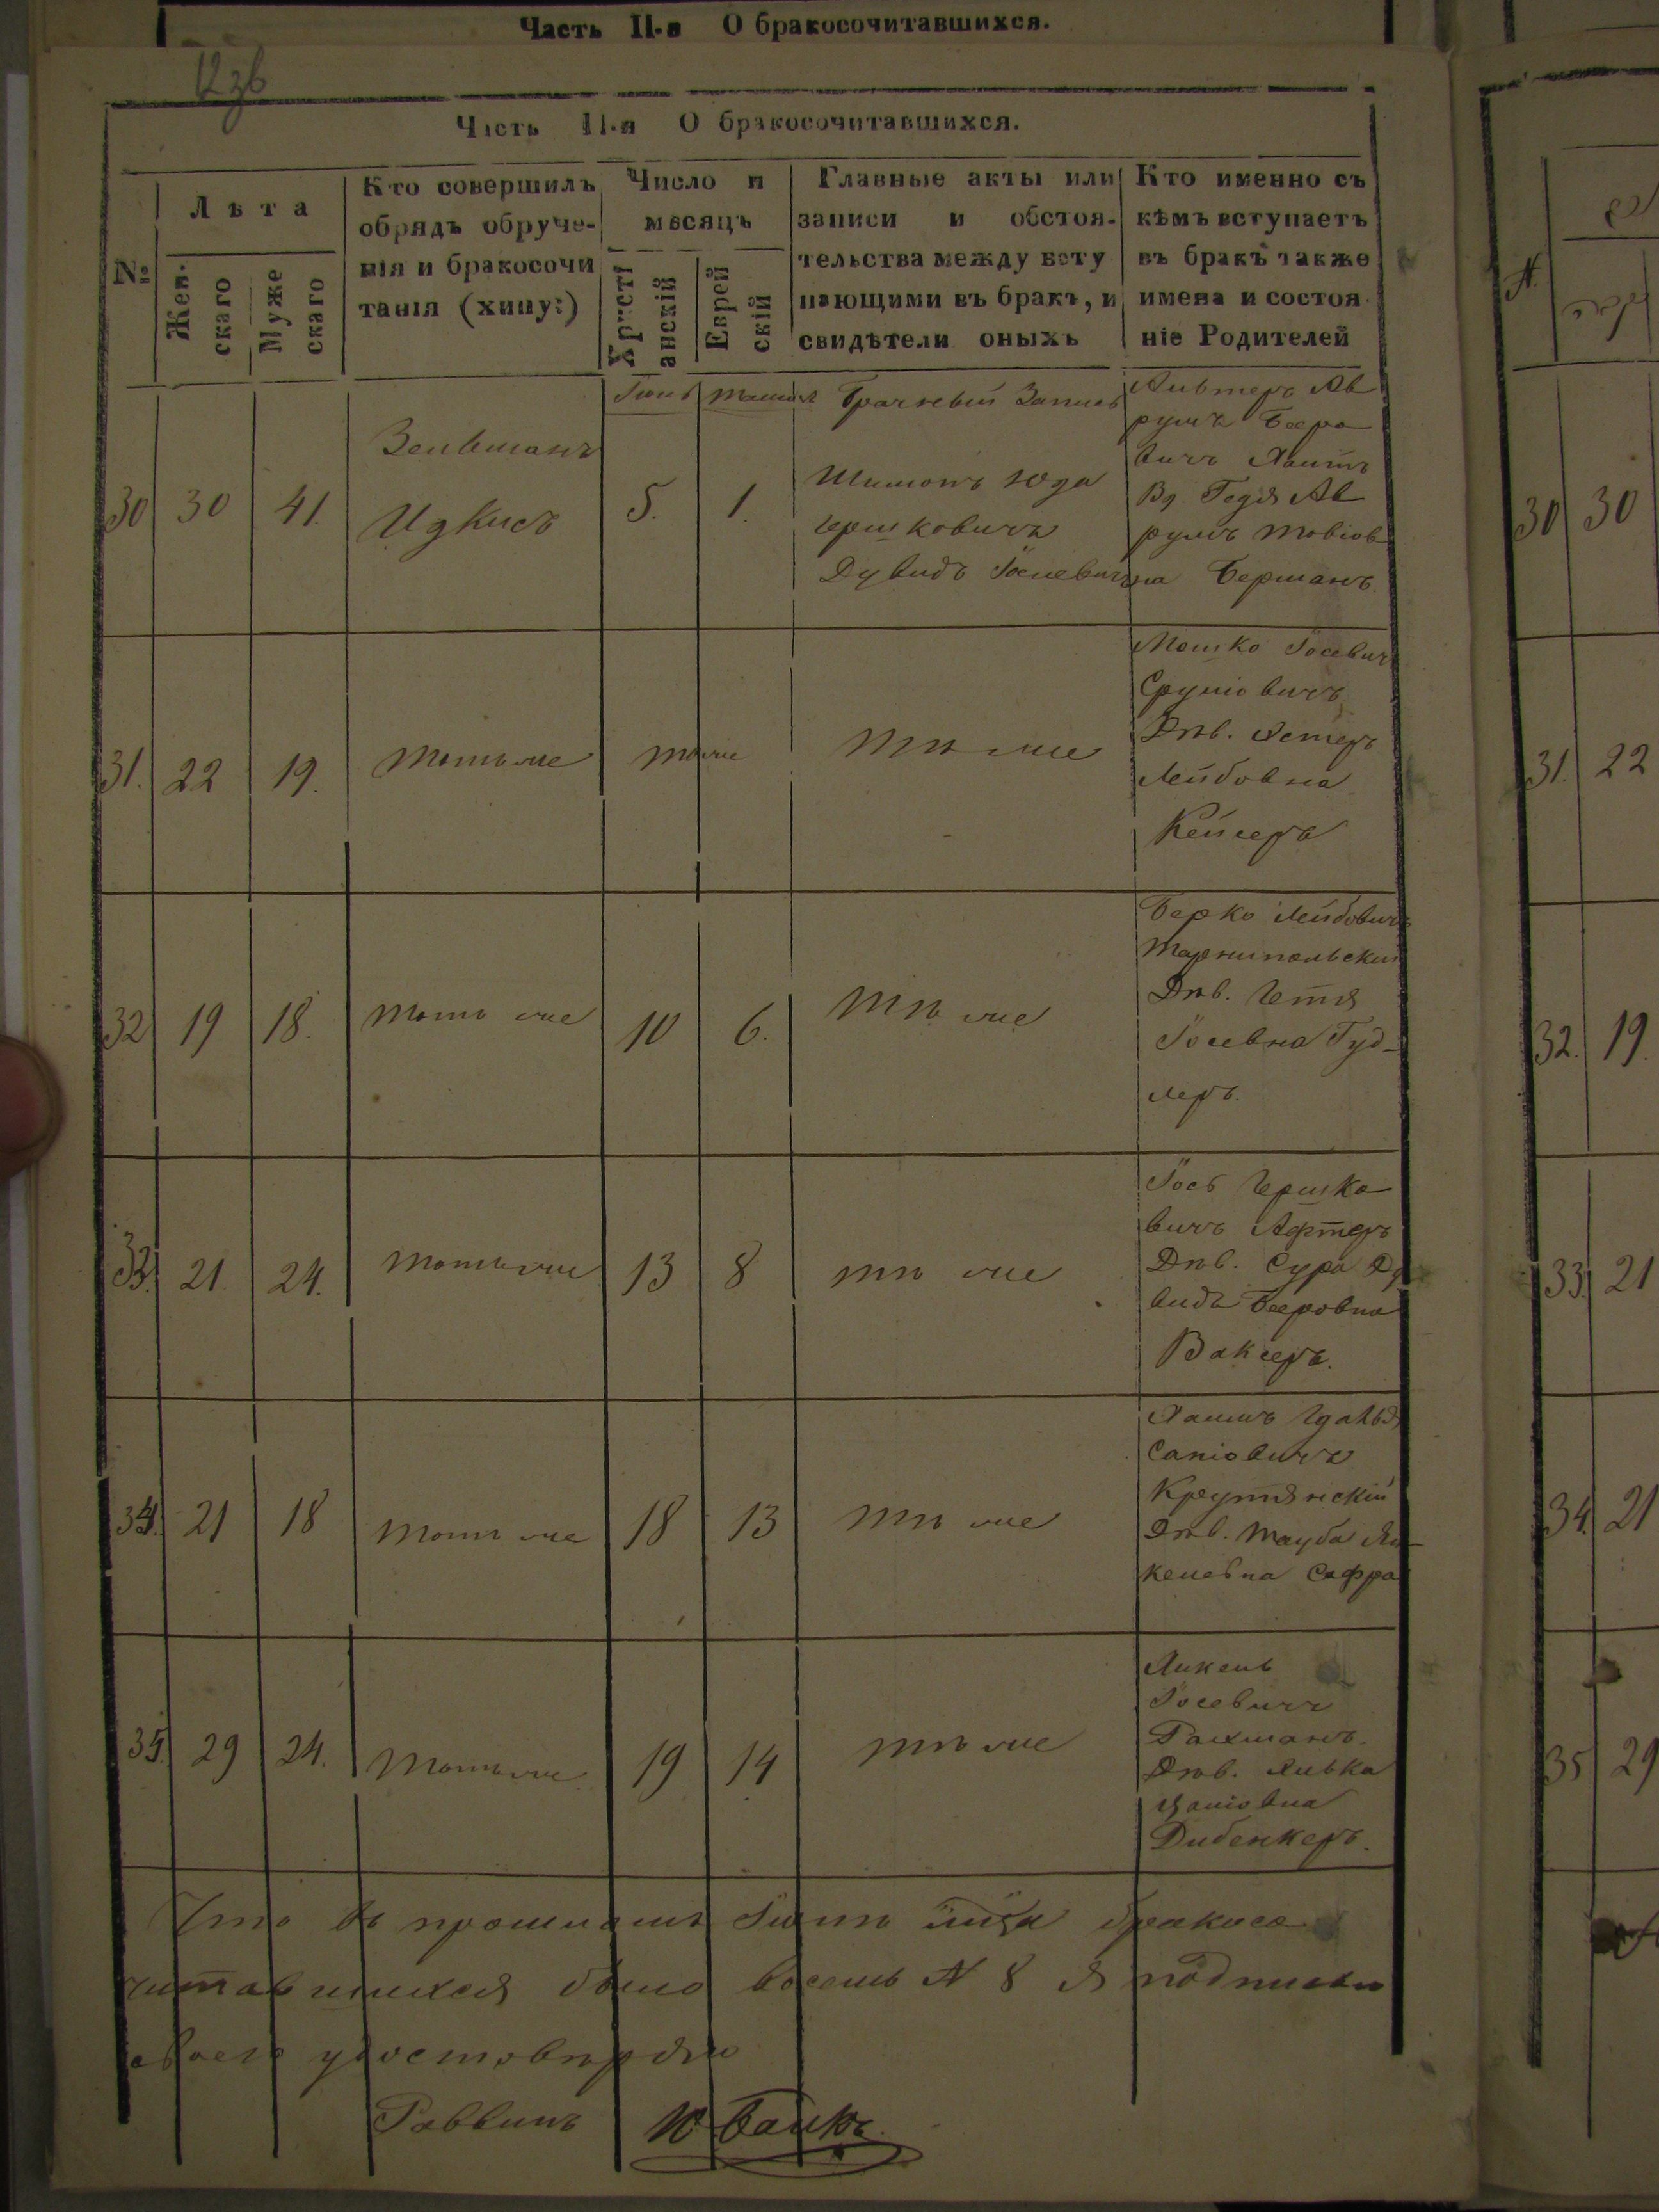 Часть II-я О бракосочитавшихся.
Часть II-я О бракосочитавшихся.
№
Лѣта
Жен-
скаго
Муже
скаго
Кто совершилъ
обрядъ обруче-
нія и бракосочи
танія (хипу:)
Число и
мѣсяцъ
Христі
анскій
Еврей
скій
Главные акты или
записи и обстоя-
тельства между всту
пающими въ бракъ, и
свидѣтели оныхъ
Кто именно съ
кѣмъ вступаетъ
въ бракъ также
имена и состоя
ніе Родителей
30 30 41.
Зельманъ
Идкисъ
Іюнь
5.
1.
Брачный Запись
Шимонъ Юда
Гершковичъ
Дувидъ Іоселевичъ
Альтеръ Ав
румъ Беро
вичъ Хаитъ
Вд. Годя Ав
румъ Товіов
на Берманъ.
31. 22 19. тотъ же тоже тѣ же
Мошко Іосевичъ
Сруліовичъ
Дѣв. Эстеръ
Лейбовна
Кейсеръ
32 19 18. тотъ же 10 6. тѣ же
Берко Лейбовичъ
Тарнипольский
Дѣв. Гетя
Іосевна Гуд-
леръ.
33. 21. 24. тотъ же 13 8 тѣ же
Іось Гершко
вичъ Афтеръ
Дѣв. Сура Ду
видъ Беровна
Ваксеръ.
34. 21 18 тотъ же 18 13 тѣ же
Хаимъ
Крутянскій
Дѣв. Тауба Ян-
келевна Сафра
35. 29 24. тотъ же 19 14 тѣ же
Янкель
Іосевичъ
Рахманъ.
Дѣв. Хивка
Дибенкеръ.
Что въ прошломъ Іюнѣ бракосо
читавшихся было восемь N 8 я подписью
своею удостовѣряю
Раввинъ
30 30
31. 22
32. 19.
33. 21
34. 21
35 29